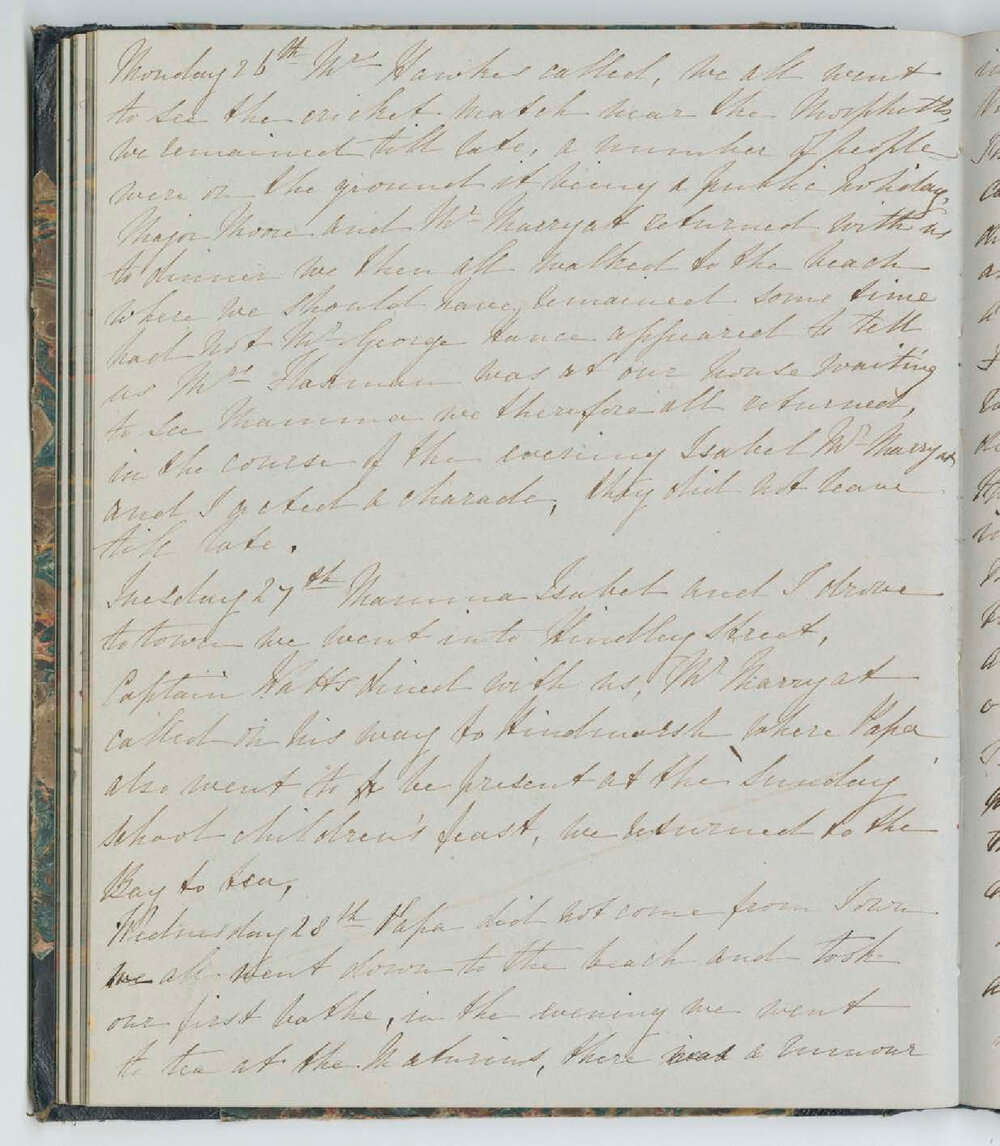 Monday 26th Mrs Hawkes called, we all went
to see the cricket match near the Morphetts,
we remained till late, a number of people
were on the ground it being a public holiday,
Major Moore and Mr Marryat returned with us
to dinner we then all walked to the beach
where we should have remained some time
had not Mr George Hance appeared to tell
us Mrs Flaxman was at our house waiting
to see Mamma we therefore all returned,
in the course of the evening Isabel Mr Marryat
and I acted a charade, they did not leave
till late.
Tuesday 27th Mamma Isabel and I drove
to town we went into Hindley Street,
Captain Watts dined with us, Mr Marryat
called on his way to Hindmarsh where Papa
also went to be present at the Sunday
school children's feast, we returned to the
Bay to tea,
Wednesday 28th Papa did not come from Town
we all went down to the beach and took
our first bathe, in the evening we went
to tea at the Maturins, there was a rumour